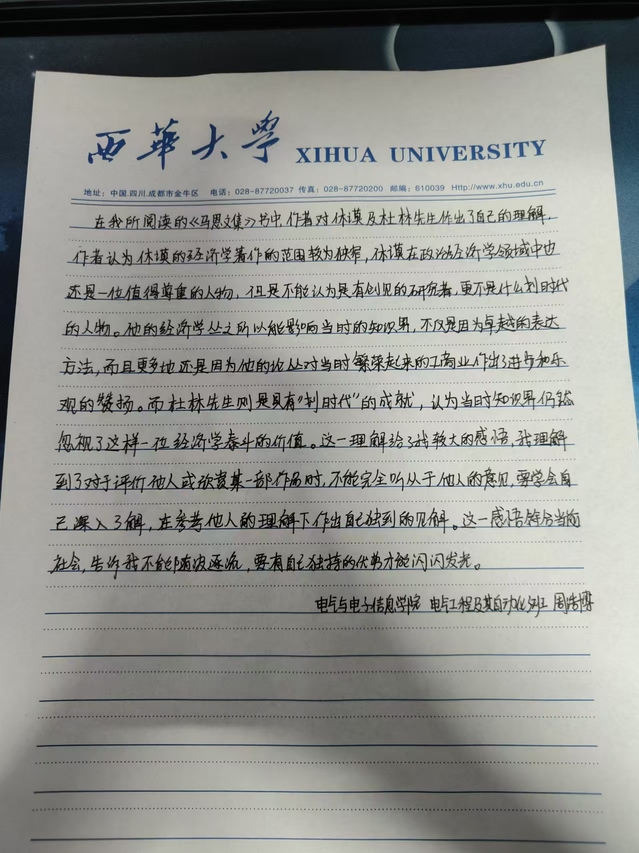 西華大學 XIHUA UNIVERSITY
地址：中国.四川.成都市金牛区 电话：028-87720037 传真：028-87720200 邮编：610039 Http://www.xhu.edu.cn
在我所阅读的《马恩文集》书中，作者对休谟及杜林先生作出了自己的理解，
作者认为休谟的经济学著作的范围较为狭窄，休谟在政治经济学领域中也
还是一位值得尊重的人物，但是不能认为是有创见的研究者，更不是什么划时代
的人物。他的经济学丛之所以能影响当时的知识界，不仅是因为卓越的表达
方法，而且更多地还是因为他的论丛对当时繁荣起来的工商业作出了进步和乐
观的赞扬。而杜林先生则是具有"划时代"的成就，认为当时知识界仍然
忽视了这样一位经济学泰斗的价值。这一理解给了我较大的感悟，我理解
到了对于评价他人或欣赏某一部作品时，不能完全听从于他人的意见，要学会自
己深入了解，在参考他人的理解下作出自己独到的见解。这一感悟符合当前
社会，告诉我不能随波逐流，要有自己独特的优势才能闪闪发光。
电气与电子信息学院 电气工程及其自动化 周浩博